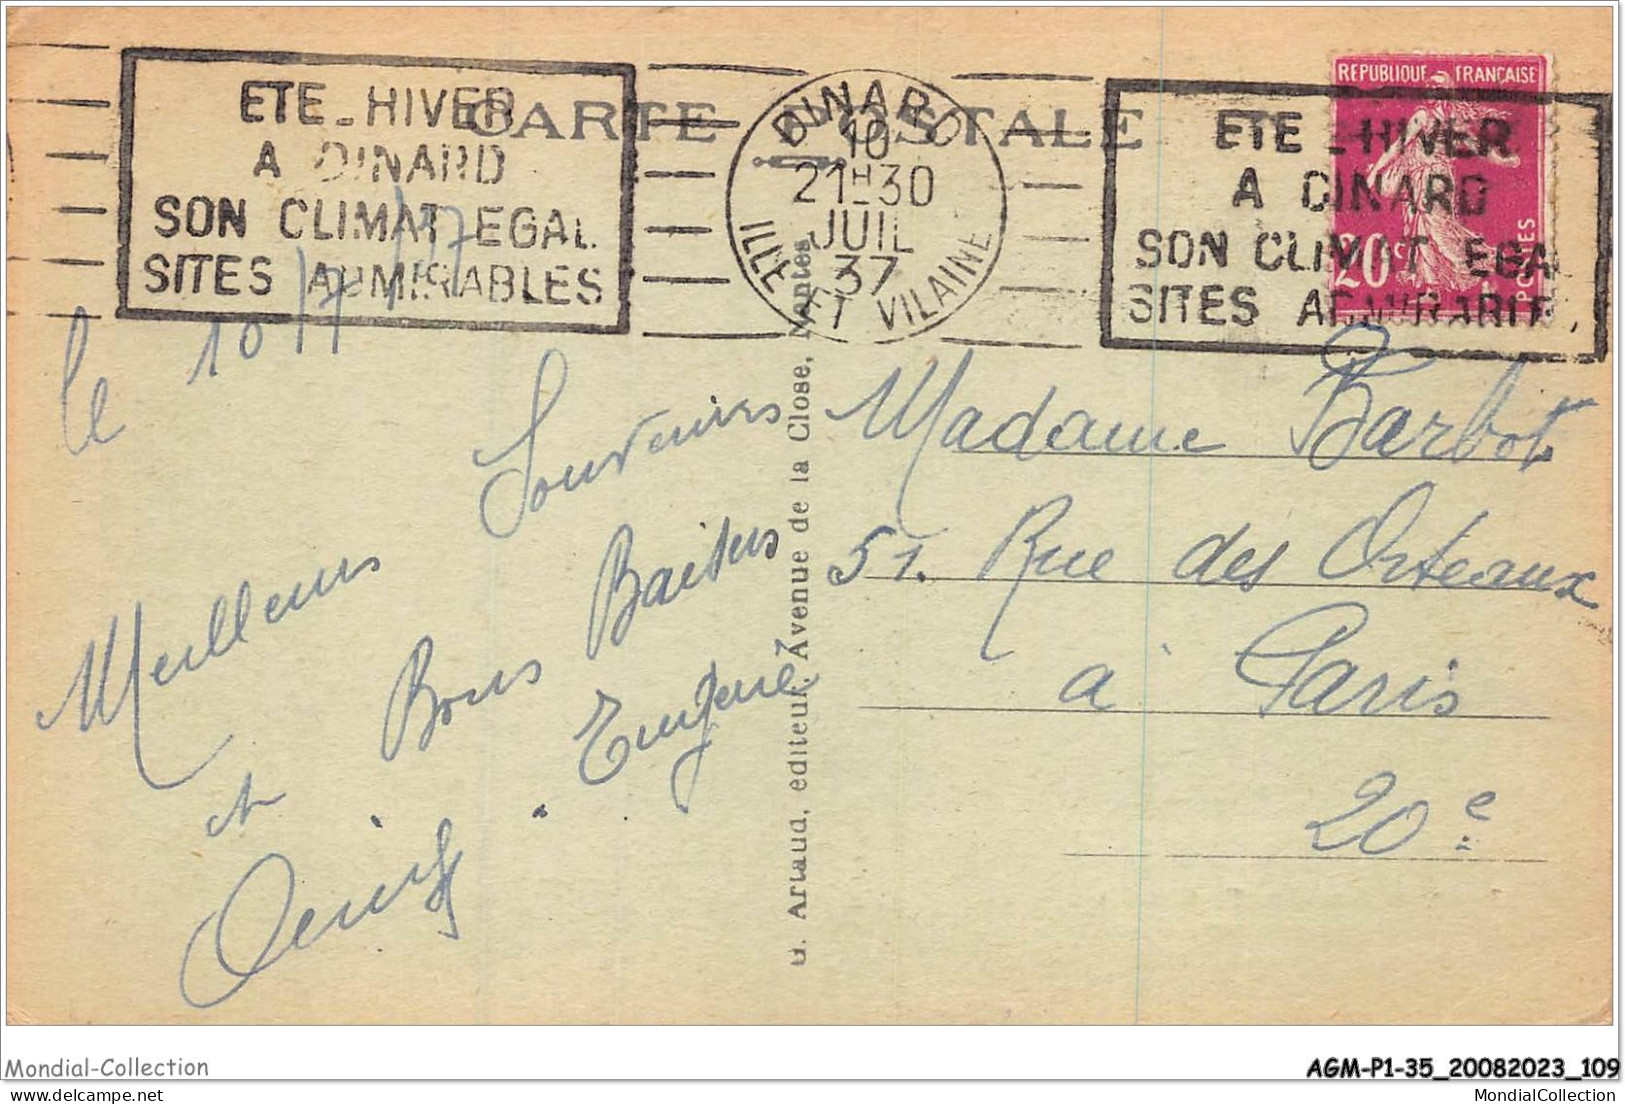 ETE - HIVER
A DINARD
SON CLIMAT EGAL
SITES ADMIRABLES
CARTE POSTALE
DINARD
10
21H30
JUIL
37
ILLE ET VILAINE
ETE - HIVER
A DINARD
SON CLIMAT EGA
SITES ADMIRABLE
REPUBLIQUE FRANÇAISE
20c
POSTES
le 10/7/37
Meilleurs Souvenirs
et Bons Baisers
Eugene
G. Artaud, editeur. Avenue de la Close, Nantes
Madame Barbot
51. Rue des Orteaux
à Paris
20e
Mondial-Collection
AGM-P1-35_20082023_109
MondialCollection